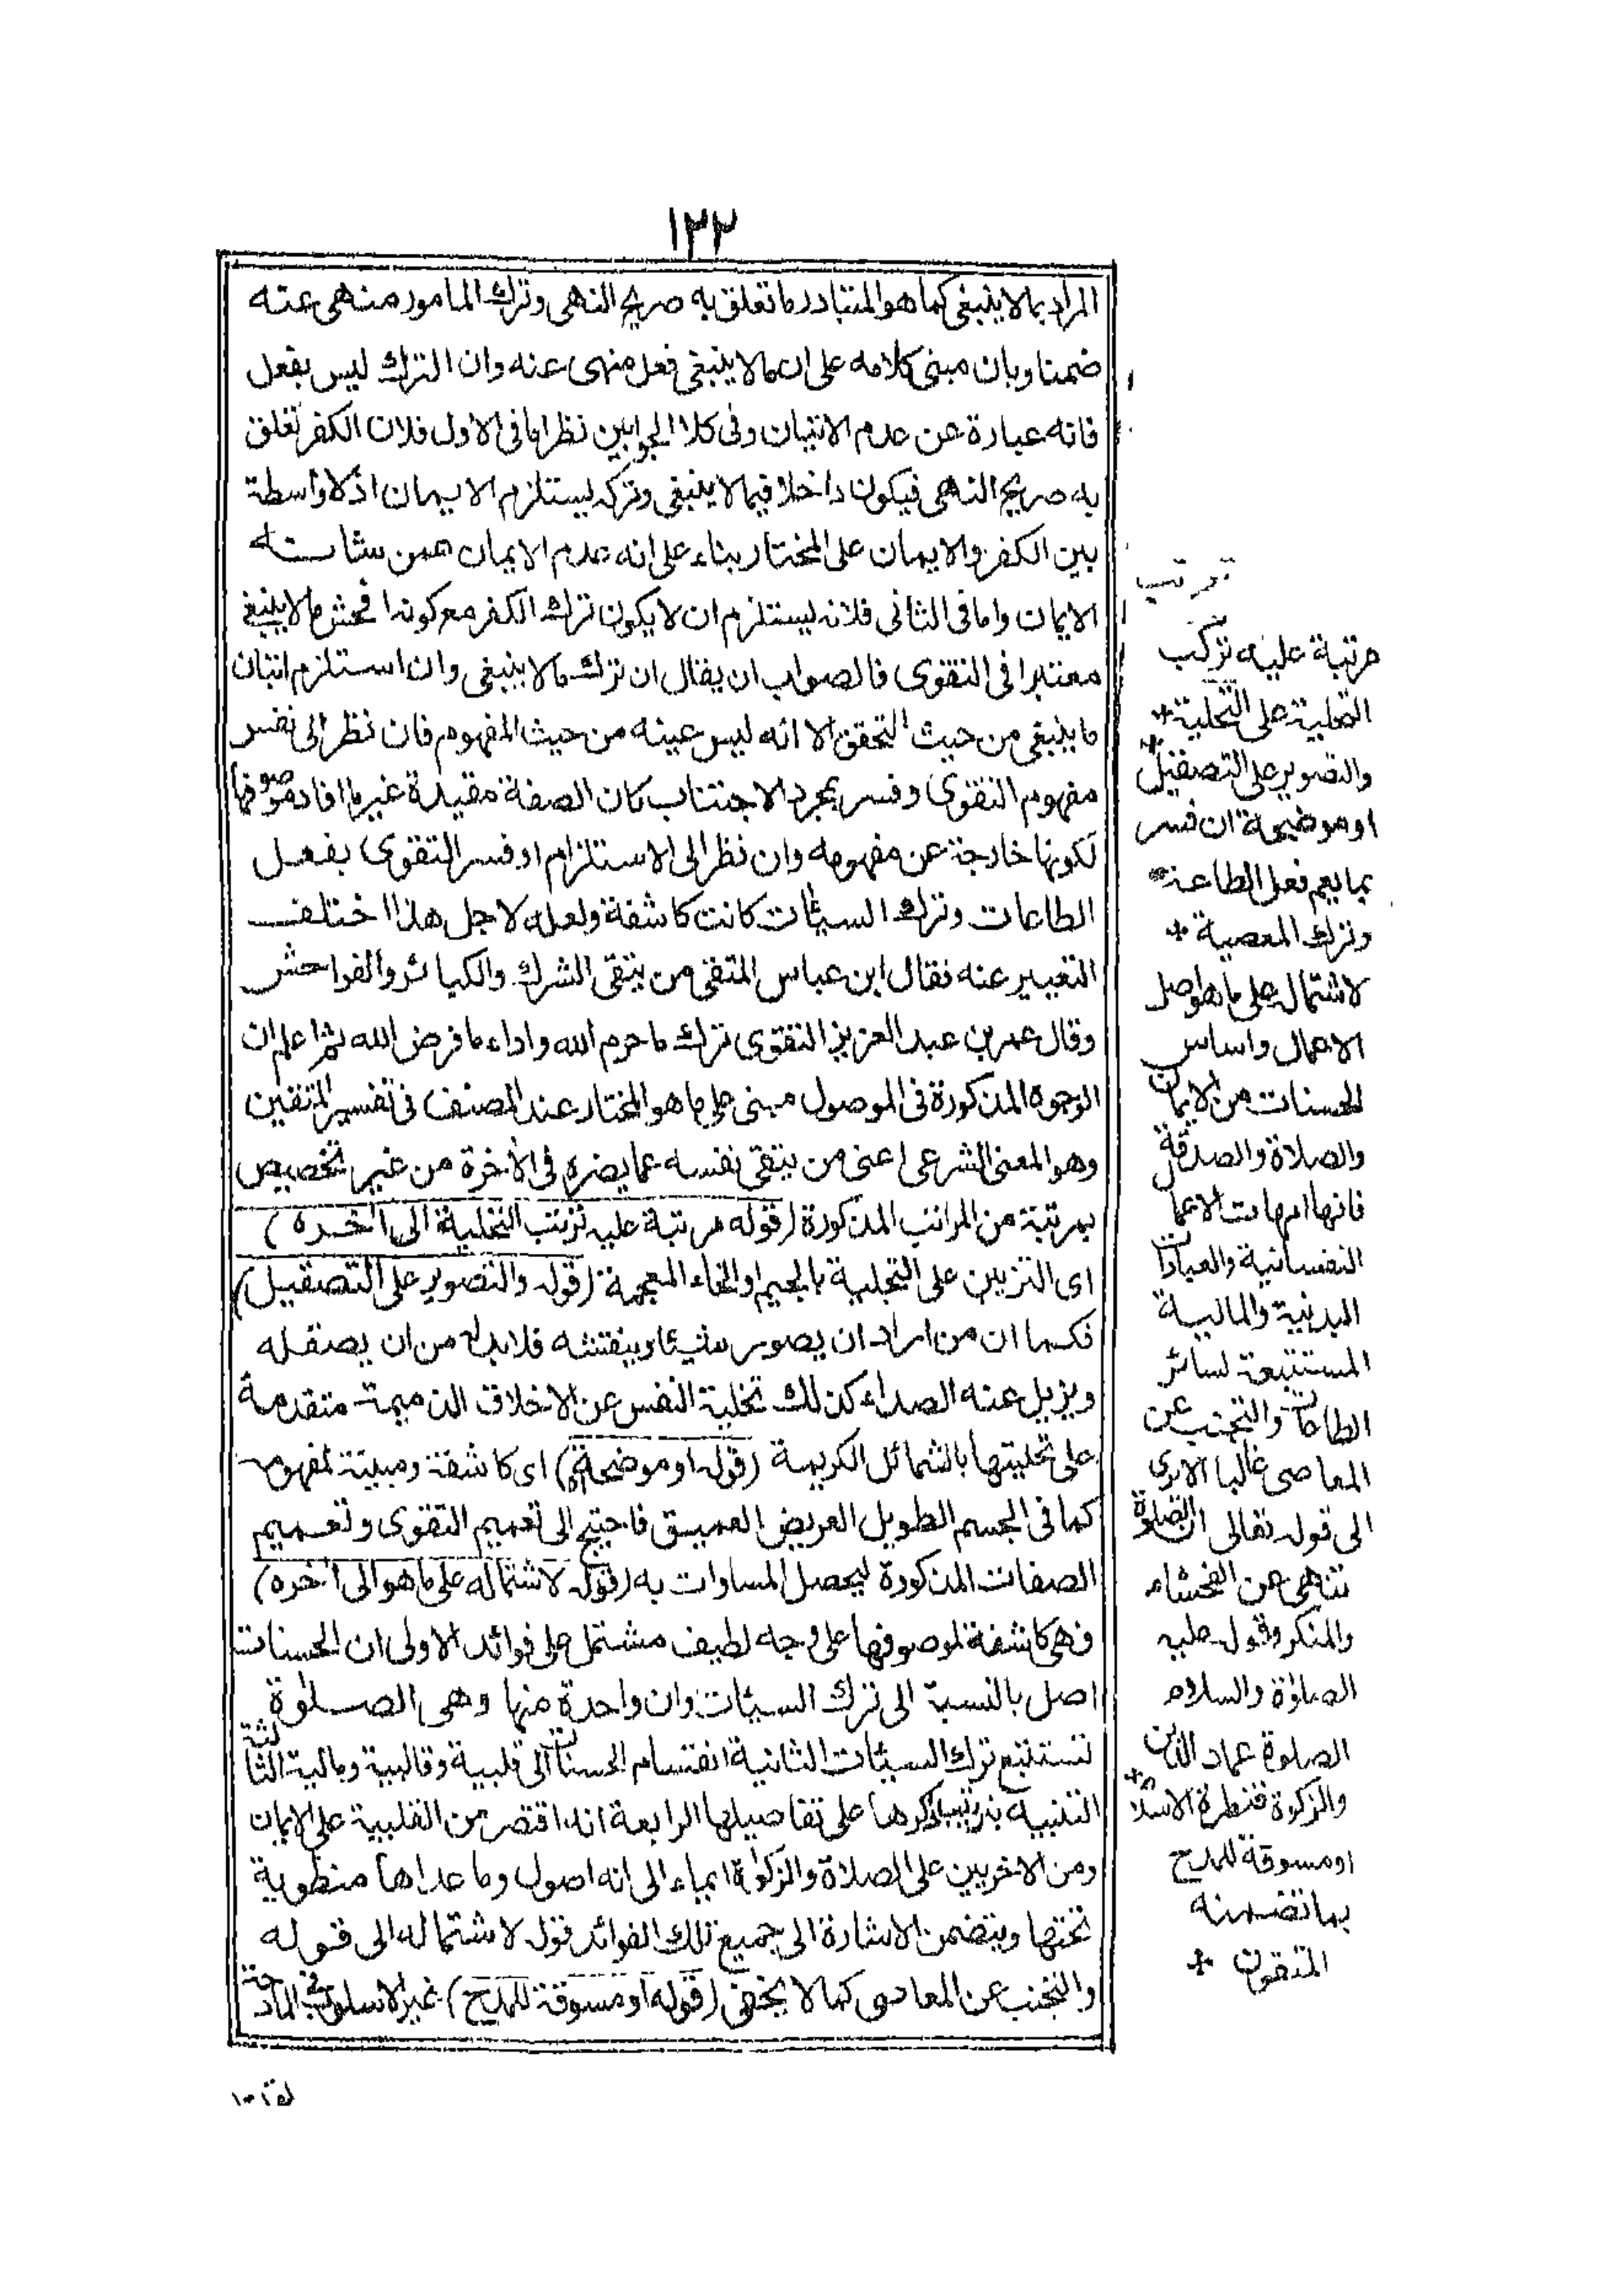 ١٢٢
المراد بما لا ينبغى كما هو المتبادر ما تعلق به صريح النهى وترك المامور منهى عنه
ضمنا وبان مبنى كلامه على ان ما لا ينبغى فعل منهى عنه وان الترك ليس بفعل
فانه عبارة عن عدم الاتيان وفى كلا الجوابين نظر اما فى الاول فلان الكفر تعلق
به صريح النهى فيكون داخلا فيما لا ينبغى وتركه يستلزم الايمان اذ لا واسطة
بين الكفر والايمان على المختار بناء على انه عدم الايمان عمن شانه
الايمان واما فى الثانى فلانه يستلزم ان لا يكون ترك الكفر مع كونه افحش ما لا ينبغى
معتبرا فى التقوى فالصواب ان يقال ان ترك ما لا ينبغى وان استلزم اتيان
ما ينبغى من حيث التحقق الا انه ليس عينه من حيث المفهوم فان نظر الى نفس
مفهوم التقوى وفسر بمجرد الاجتناب كان الصفة مقيدة غير ما افاد موصوفها
لكونها خارجة عن مفهومه وان نظر الى الاستلزام او فسر التقوى بفعل
الطاعات وترك السيئات كانت كاشفة ولعله لاجل هذا اختلف
التعبير عنه فقال ابن عباس المتقى من يتقى الشرك والكبائر والفواحش
وقال عمر بن عبد العزيز التقوى ترك ما حرم الله واداء ما فرض الله ثم اعلم ان
الوجوه المذكورة فى الموصول مبنى على ما هو المختار عند المصنف فى تفسير المتقين
وهو المعنى الشرعى اعنى من يتقى نفسه عما يضره فى الاخرة من غير تخصيص
بمرتبة من المراتب المذكورة (قوله مرتبة عليه ترتب التحلية الى اخره)
اى التزيين على التجلية بالجيم او الخاء المعجمة (قوله والتصوير على التصقيل)
فكما ان من اراد ان يصور شيئا وينقشه فلا بد له من ان يصقله
ويزيل عنه الصداء كذلك تخلية النفس عن الاخلاق الذميمة متقدمة
على تحليتها بالشمائل الكريمة (قوله او موضحة) اى كاشفة ومبينة لمفهومه
كما فى الجسم الطويل العريض العميق فاحتيج الى تعميم التقوى وتعميم
الصفات المذكورة ليحصل المساوات به (قوله لاشتماله على ما هو الى اخره)
فهى كاشفة لموصوفها على وجه لطيف مشتمل على فوائد الاولى ان الحسنات
اصل بالنسبة الى ترك السيئات وان واحدة منها وهى الصلوٰة
تستتبع ترك السيئات الثانية انقسام الحسنات الى قلبية وقالبية ومالية الثالثة
التنبيه بترتيب ذكرها على تفاصيلها الرابعة انه اقتصر من القلبية على الايمان
ومن الاخريين على الصلاة والزكوٰة ايماء الى انه اصول وما عداها منطوية
تحتها ويتضمن الاشارة الى جميع تلك الفوائد قوله لاشتماله الى قوله
والتجنب عن المعاصى كما لا يخفى (قوله او مسوقة للمدح) غير الاسلوب
ترتب
مرتبة عليه تركب
التحلية على التخلية *
والتصوير على التصقيل *
او موضحة ان فسر
بما يعم فعل الطاعة
وترك المعصية *
لاشتماله على ما هو اصل
الاعمال واساس
الحسنات من الايمان
والصلاة والصدقة
فانها امهات الاعمال
النفسانية والعبادات
البدنية والمالية
المستتبعة لسائر
الطاعات والتجنب عن
المعاصى غالبا الا ترى
الى قوله تعالى ان الصلوة
تنهى عن الفحشاء
والمنكر وقوله عليه
الصلوٰة والسلام
الصلوة عماد الدين
والزكوة قنطرة الاسلام *
او مسوقة للمدح
بما تضمنه
المتقون *